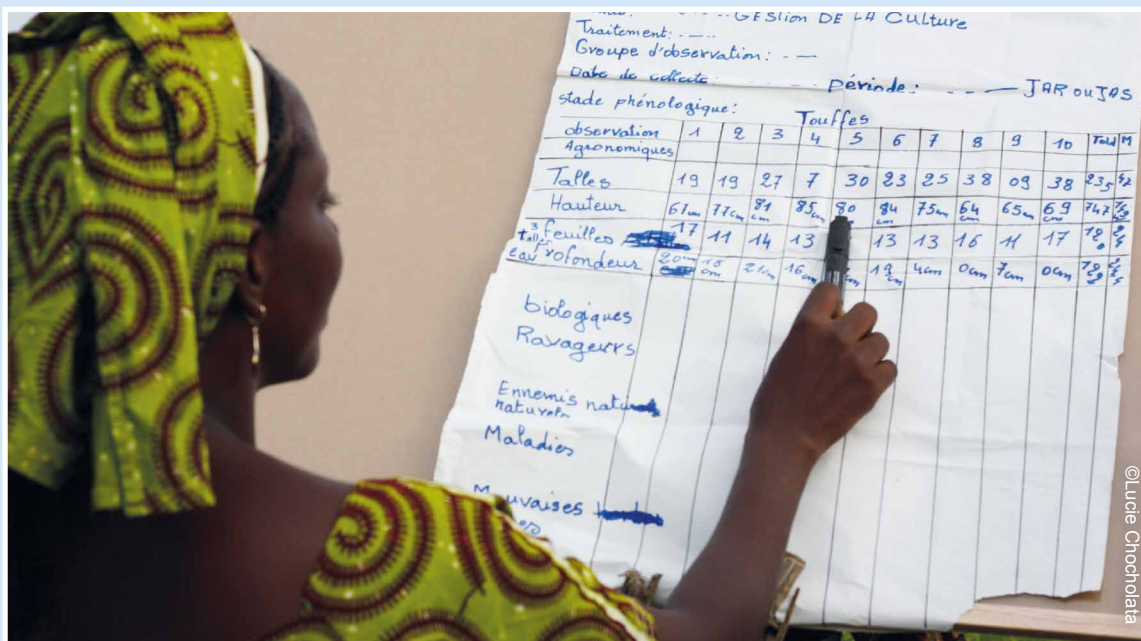 GESTION DE LA CULTURE
Traitement: - --
Groupe d'observation: - —
Date de collecte: -- période: - - - — JAR OU JAS
stade phénologique:
Touffes
observation 1 2 3 4 5 6 7 8 9 10 Total M
Agronomiques
Talles 19 19 27 7 30 23 25 38 09 38 235
Hauteur 67cm 77cm 81cm 85cm 80 84cm 75cm 64cm 65cm 69cm 747
feuilles 17 11 14 13 13 13 16 11 17
eau profondeur 20cm 21cm 16cm 4cm 0cm 7cm 0cm
biologiques
Ravageurs
Ennemis
naturels
Maladies
Mauvaises
©Lucie Chocholata